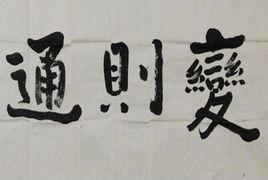 變則通